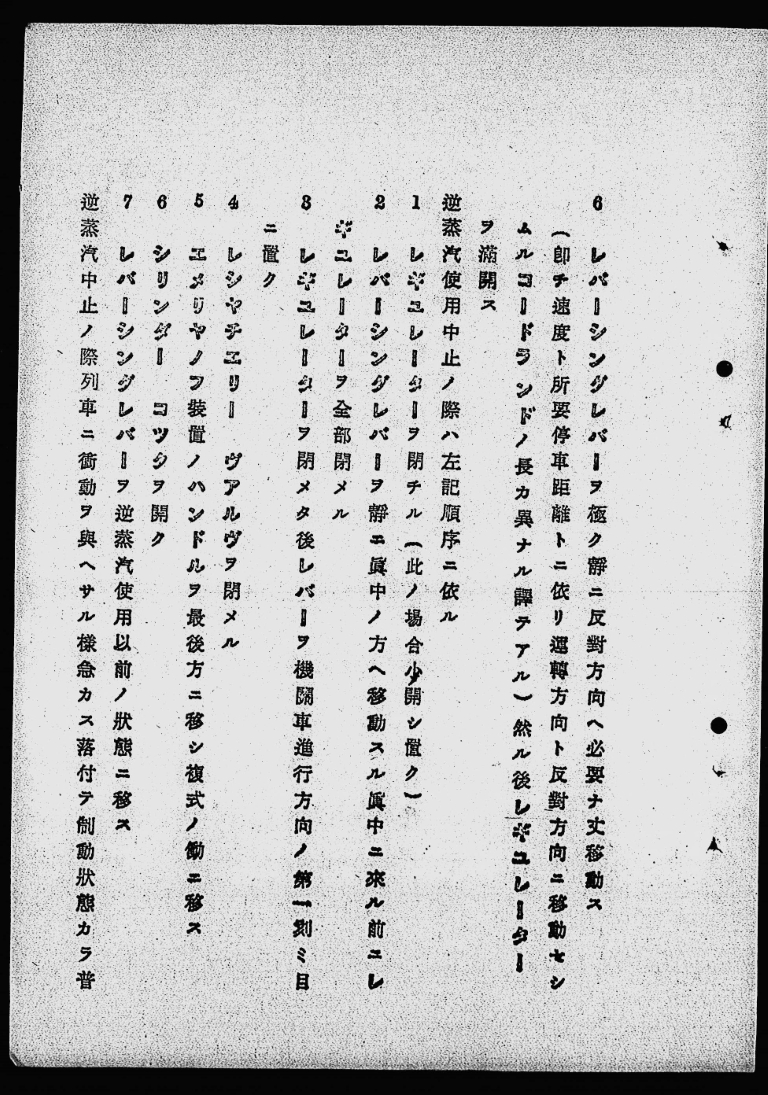 6 レバーシングレバーヲ極ク靜ニ反對方向ヘ必要ナ丈移動ス
(卽チ速度ト所要停車距離トニ依リ運轉方向ト反對方向ニ移動セシ
ムルコードランドノ長カ異ナル譯テアル)然ル後レギユレーター
ヲ滿開ス
逆蒸汽使用中止ノ際ハ左記順序ニ依ル
1 レギユレーターヲ閉チル(此ノ場合少開シ置ク)
2 レバーシングレバーヲ靜ニ眞中ノ方ヘ移動スル眞中ニ來ル前ニレ
ギユレーターヲ全部閉メル
3 レギユレーターヲ閉メタ後レバーヲ機關車進行方向ノ第一刻ミ目
ニ置ク
4 レシヤチエリー ヴアルヴヲ閉メル
5 エメリヤノフ裝置ノハンドルヲ最後方ニ移シ複式ノ働ニ移ス
6 シリンダー コツクヲ開ク
7 レバーシングレバーヲ逆蒸汽使用以前ノ狀態ニ移ス
逆蒸汽中止ノ際列車ニ衝動ヲ與ヘサル樣急カス落付テ制動狀態カラ普